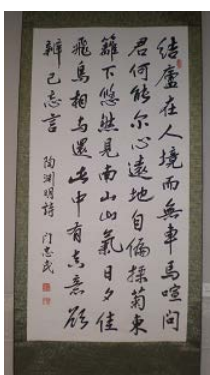 結廬在人境而無車馬喧問
君何能尔心遠地自偏採菊東
籬下悠然見南山山氣日夕佳
飛鳥相与還此中有真意欲
辨已忘言 陶淵明詩 门志武